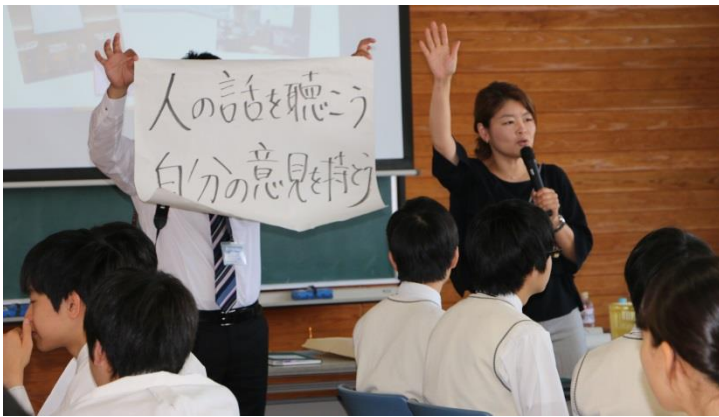 人の話を聴こう
自分の意見を持とう